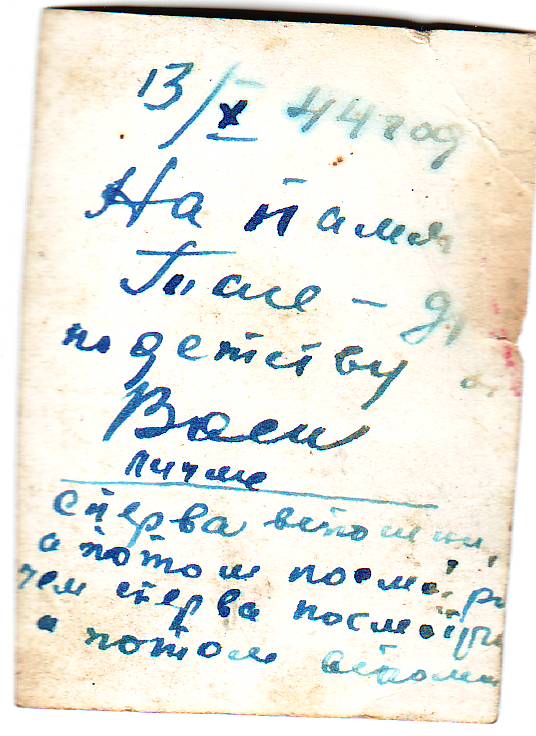 13/X 44 год
На памя
Тасе - д
по детству о
Васи
лучше
сперва вспомни,
а потом посмотри
чем сперва посмотри
а потом вспомни